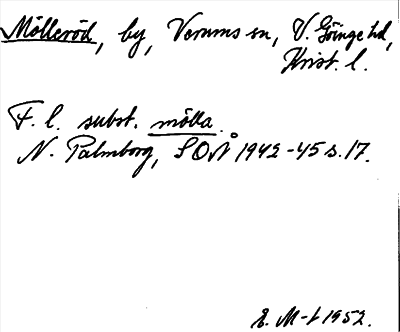 Mölleröd, by, Verums sn, V. Göinge hd,
Krist. l.
F. l. subst. mölla.
N. Palmborg, SOÅ 1942-45 s. 17.
E. M-t 1952.